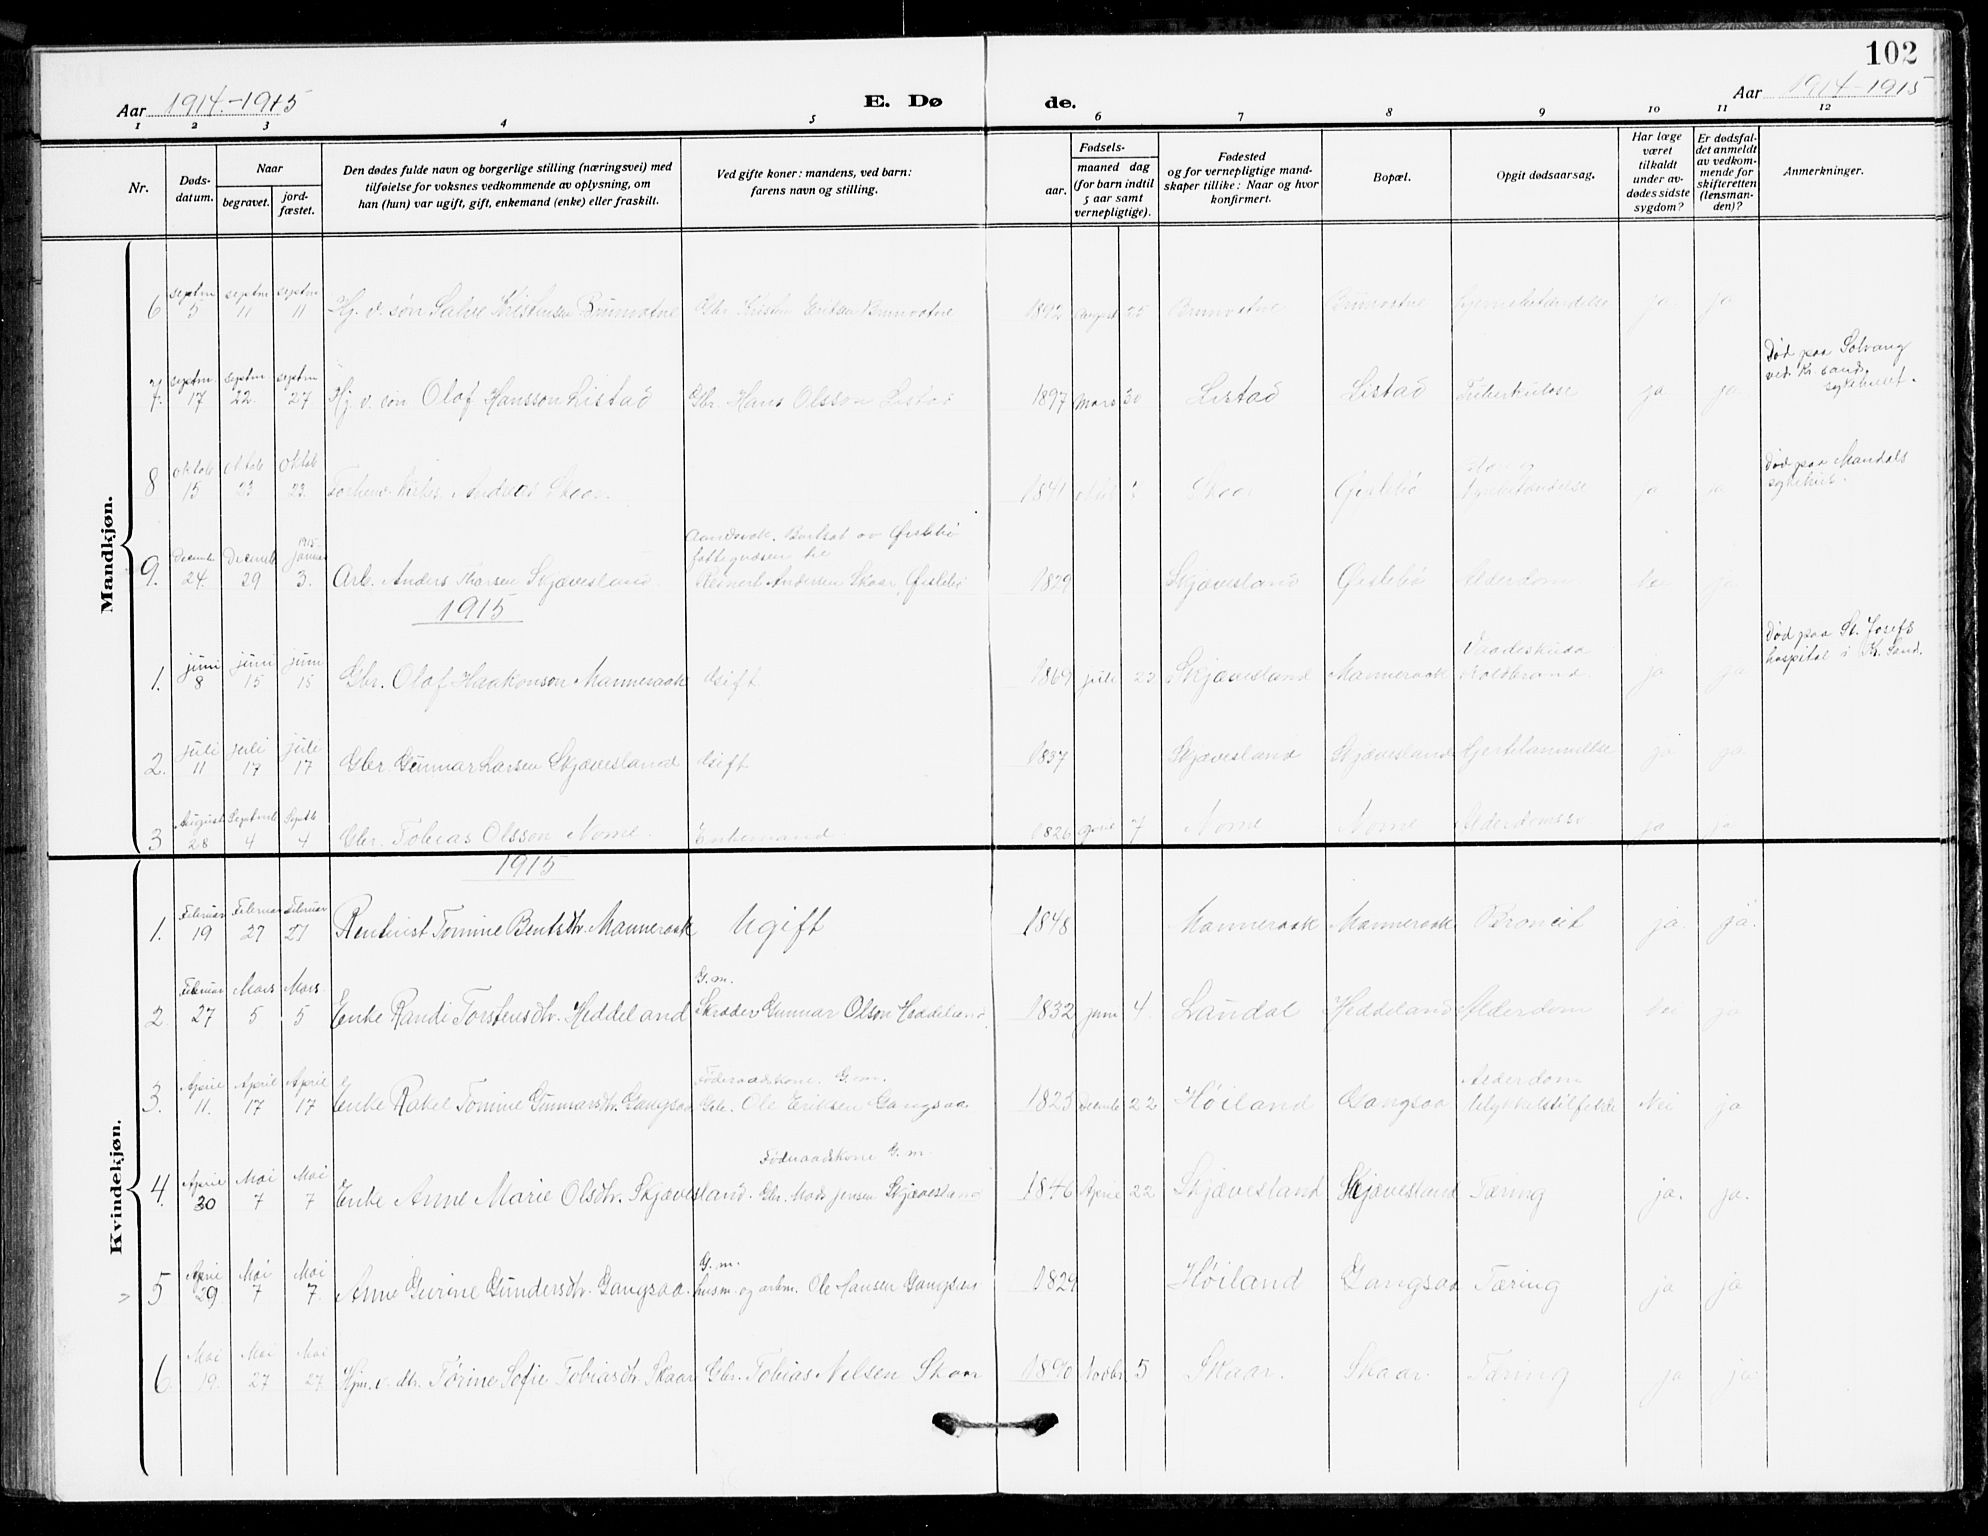 102
Aar 1914.-1915
E. Dø
de.
Aar 1914-1915
1 2 3 4 5 6 7 8 9 10 11 12
Nr.
Døds-
datum.
Naar
begravet.
jord-
fæstet.
Den dødes fulde navn og borgerlige stilling (næringsvei) med
tilføielse for voksnes vedkommende av oplysning, om
han (hun) var ugift, gift, enkemand (enke) eller fraskilt.
Ved gifte koner: mandens, ved barn:
farens navn og stilling.
Fødsels-
aar.
maaned dag
(for barn indtil
5 aar samt
vernepligtige).
Fødested
og for vernepligtige mand-
skaper tillike: Naar og hvor
konfirmert.
Bopæl.
Opgit dødsaarsag.
Har læge
været
tilkaldt
under av-
dødes sidste
sygdom?
Er dødsfal-
det anmeldt
av vedkom-
mende for
skifteretten
(lensman-
den)?
Anmerkninger.
Mandkjøn.
6 septm 5 septm 11 septm 11 Hj. v. søn Salve Kristensen Brunvatne Gbr. Kristen Eriksen Brunvatne 1892 august 25 Brunvatne Brunvatne ja ja
7. septm. 17 septm 22. septm 27. Hj. v. søn Olaf Hansson Listad Gbr. Hans Olsson Listad 1897 Mars 30 Listad Listad Tuberkulose ja ja
Død paa Solvang
ved Kr. sand.
sykehuset.
8 Oktob 15 Oktob 23 Oktob 23. Andreas Skaar. 1841 Skaar Øislebø ja ja
Død paa Mandals
sykehus.
9. Decemb 24. Decemb 29 1915 januar 3. Arb. Anders Thorsen Skjævesland. 1829 Skjævesland Øislebø Alderdom Nei ja
fattigvæsen
Andersen Skaar, Øislebø
1915
1. juni 8 juni 15 juni 15 Gbr. Olaf Haakonson Manneraak Gift 1869 juli 23 Skjævesland Manneraak Vaadeskudd Koldbrand. ja ja
Død paa St. Josefs
hospital i Kr. Sand.
2. juli 11 juli 17 juli 17 Gbr. Gunnar Larsen Skjævesland Gift 1837 Skjævesland Skjævesland Hjertelammelse ja ja
3 August 28 Septemb 4 Septb 4 Gbr. Tobias Olsson Nome. Enkemand. 1826 7 Nome Nome ja ja
Kvindekjøn.
1915
1. Februar 19 Februar 27 Februar 27 Rentnist Tomine Bentsdtr. Manneraak Ugift 1848 Manneraak Manneraak Broncit ja. ja.
2 Februar 27 Mars 5 Mars 5 Enke Randi Torstensdtr. Heddeland
G. m.
Skrædder Gunnar Olson Heddeland 1832 juni 4. Laudal Heddeland Alderdom Nei ja
3. April 11. April 17 April 17 Enke Rakel Tomine Gunnarsdtr. Gangsaa
Føderaadskone. G. m.
Gbr. Ole Eriksen Gangsaa 1823 Decemb 22 Høiland Gangsaa
Alderdom
Ulykkelstilfelde Nei ja
4. April 30 Mai 7 Mai 7 Enke Anne Marie Olsdtr. Skjævesland.
Føderaadskone G. m.
Gbr. Mads Jensen Skjævesland 1846 April 22 Skjævesland Skjævesland Tæring ja. ja.
5 April 29 Mai 7 Mai 7. Anne Gurine Gundersdtr. Gangsaa.
G. m.
husm. og arbm. Ole Hansen Gangsaa 1829 Høiland Gangsaa Tæring ja ja
6. Mai 19. Mai 27 Mai 27 Hjm. v. dtr. Tørine Sofie Tobiasdtr. Skaar Gbr. Tobias Nilsen Skaar 1890 Novbr 5 Skaar. Skaar. Tæring ja ja